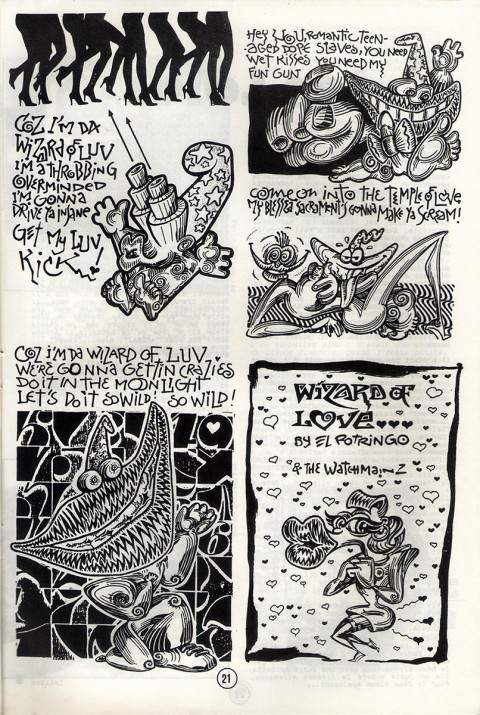 COZ I'M DA
WIZARD of LUV
I'M A THROBBING
OVERMINDED
I'M GONNA
DRIVE YA INSANE
GET MY LUV
KICK...!
HEY YOU, ROMANTIC TEEN-
-AGED DOPE SLAVES, YOU NEED
WET KISSES YOU NEED MY
FUN GUN
COME ON INTO THE TEMPLE of LOVE
MY BLESSA SACRAMENT'S GONNA MAKE YA SCREAM!
COZ I'M DA WIZARD OF LUV.
WE'RE GONNA GET IN CRAZIES
DO IT IN THE MOONLIGHT
LET'S DO IT SO WILD! SO WILD!
WIZARD OF
LOVE...
BY EL POTRINGO
& THE WATCHMAIN Z
21